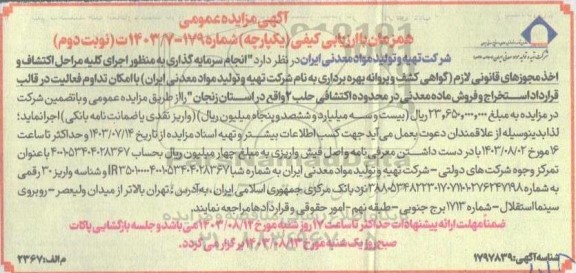 آگهی مزایده عمومی
همزمان با ارزیابی کیفی (یکپارچه) شماره ۱۷۹-۷-۱۴۰۳ ت (نوبت دوم)
شرکت تهیه و تولید مواد معدنی ایران در نظر دارد "انجام سرمایه گذاری به منظور اجرای کلیه مراحل اکتشاف و
اخذ مجوزهای قانونی لازم (گواهی کشف و پروانه بهره برداری به نام شرکت تهیه و تولید مواد معدنی ایران) با امکان تداوم فعالیت در قالب
قرارداد استخراج و فروش ماده معدنی در محدوده اکتشافی حلب ۲ واقع در استان زنجان" را از طریق مزایده عمومی و با تضمین شرکت
در مزایده به مبلغ ۲۳,۶۵۰,۰۰۰,۰۰۰ ریال (بیست و سه میلیارد و ششصد و پنجاه میلیون ریال) (واریز نقدی یا ضمانت نامه بانکی) اجرا نماید؛
لذا بدینوسیله از علاقمندان دعوت بعمل می آید جهت کسب اطلاعات بیشتر و تهیه اسناد مزایده از تاریخ ۱۴۰۳/۰۷/۱۴ و حداکثر تا ساعت
۱۶ مورخ ۱۴۰۳/۰۸/۰۲ با در دست داشتن معرفی نامه و اصل فیش واریزی به مبلغ چهار میلیون ریال بحساب ۴۰۰۱۰۵۳۴۰۴۰۲۸۳۶۷ با عنوان
تمرکز وجوه شرکت های دولتی - شرکت تهیه و تولید مواد معدنی ایران به شماره شبا و شناسه واریز ۳۰ رقمی
به شماره نزد بانک مرکزی جمهوری اسلامی ایران، به آدرس: تهران بالاتر از میدان ولیعصر - روبروی
سینما استقلال - شماره ۱۷۱۳ برج جنوبی - طبقه نهم - امور حقوقی و قراردادها مراجعه نمایند.
ضمنا مهلت ارائه پیشنهادات حداکثر تا ساعت ۱۷ روز شنبه مورخ ۱۴۰۳/۰۸/۱۲ می باشد و جلسه بازگشایی پاکات
صبح روز یک شنبه مورخ ۱۴۰۳/۰۸/۱۳ برگزار می گردد.
شناسه آگهی: ۱۷۹۷۸۳۹
م الف: ۲۳۶۷